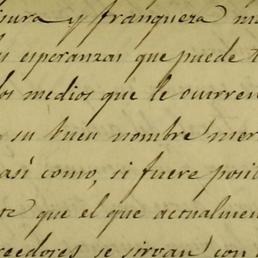 sura y franqueza m
s esperanzas que puede t
los medios que le ocurren
su buen nombre mer
así como, si fuere posi
te que el que actualmen
reedores se sirvan con